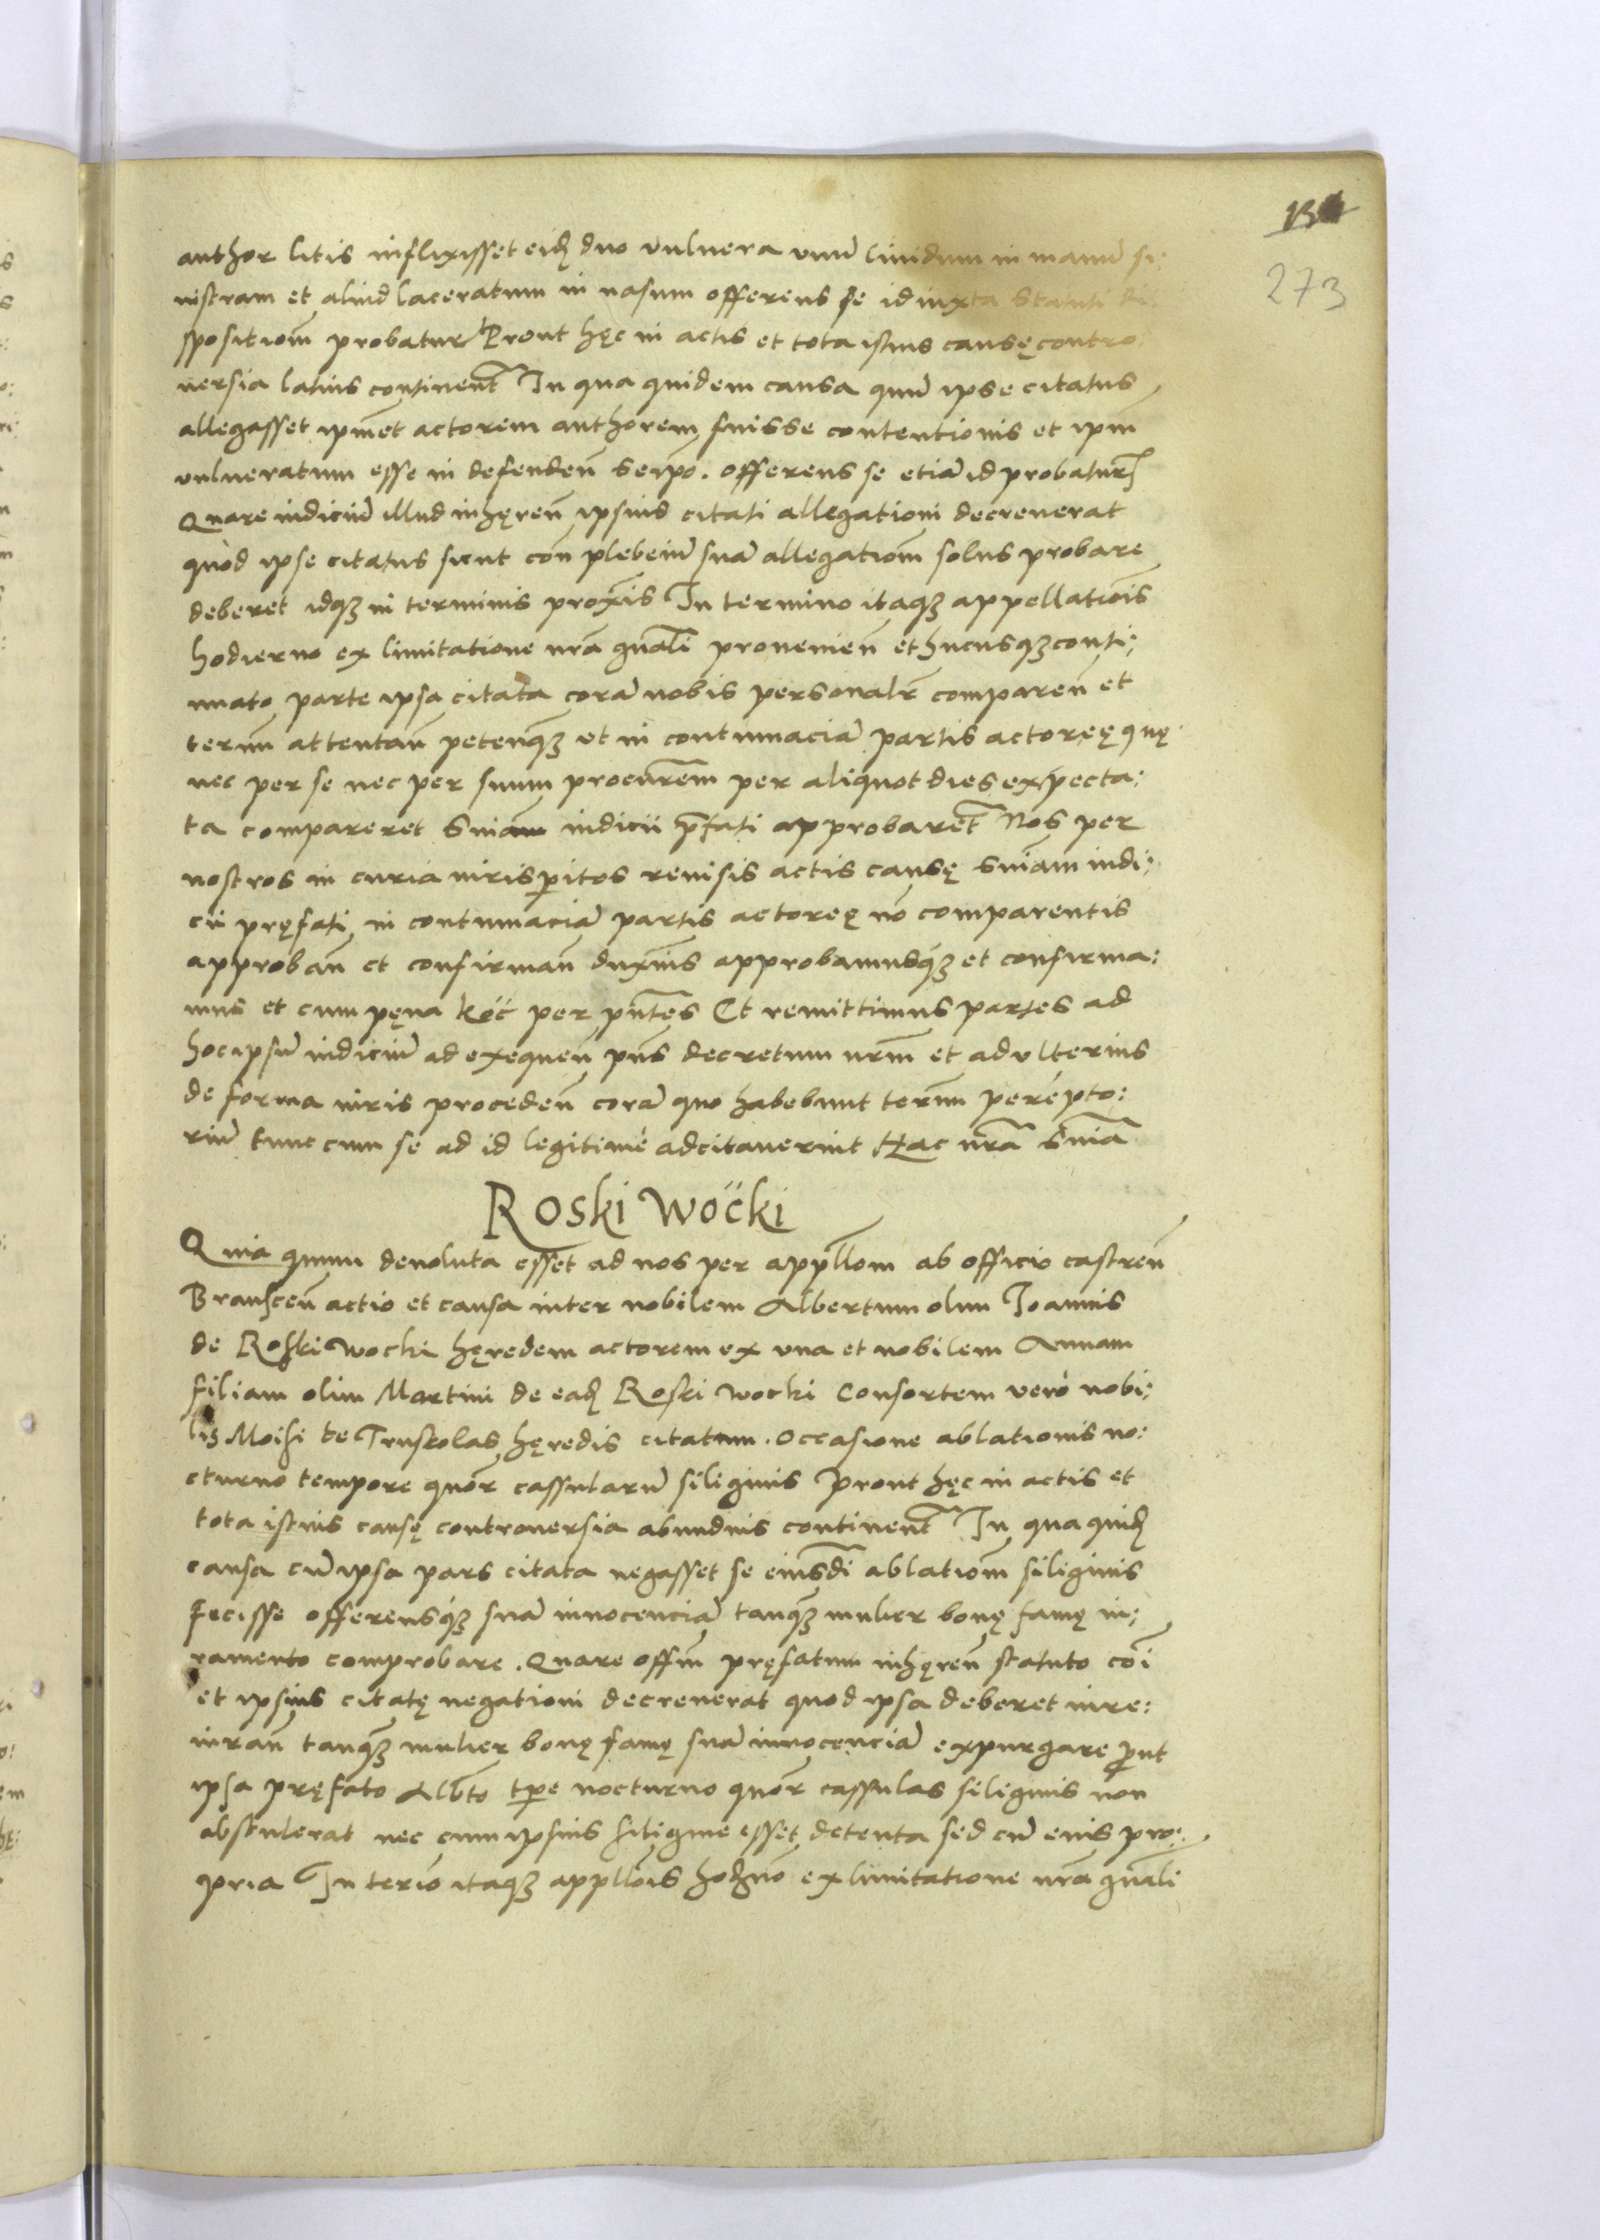 273
author litis inflixisset eidē duo vulnera unū lividum in manū si:
nistram et aliud laceratum in nasum offerens se id iuxta statuti di:
spositionē probaturū Prout hęc in actis et tota istius causę contro:
versia latius continent̄ In qua quidem causa quū ipse citatus
allegasset ipm̄et actorem authorem fuisse contentionis et ipm̄
vulneratum esse in defenden̄ seip̄o. offerens se etiā id probatur̄
Quare iudiciū illud inhęren̄ ipsius citati allegationi decreverat
quòd ipse citatus sicut con̄ plebeiū suā allegationē solus probare
deberet idqȝ in terminis prox̄is In termino itaqȝ appellatiōis
hodierno ex limitatione nrā gn̄ali provenien̄ et hucusqȝ conti:
nuato parte ipsa citata corā nobis personalr̄ comparen̄ et
termn̄ attentan̄ petenqȝ ut in contumaciā partis actoreę quę
nec per se nec per suum procur̄em per aliquot dies expecta:
ta compareret sn̄iam iudicii p̄fati approbaret̄ Nos per
nostros in curia iurisp̄itos revisis actis causę sn̄iam iudi:
cii pręfati in contumaciā partis actoreę nō comparentis
approban̄ et confirman̄ duxim̄s approbamusqȝ et confirma:
mus et cum pęna koc̈ per pn̄tes Et remittimus partes ad
hoc ipsū iudiciū ad exequen̄ pn̄s decretum nr̄m et ad ulterius
de forma iuris proceden̄ corā quo habebunt termn̄ perēpto:
riū tunc cum se ad id legitimè adcitaverint Hac nrā sn̄ia
Roski Woc̈ki
Quia quum devoluta esset ad nos per appll̄om ab officio castren̄
Branscen̄ actio et causa inter nobilem Albertum olim Ioannis
de Roski wocki hęredem actorem ex una et nobilem Annam
filiam olim Martini de eadē Roski wocki Consortem verò nobi:
lis Moisi de Truskolas hęredis citatam. occasione ablationis no:
cturno tempore quōr cassularū siliginis Prout hęc in actis et
tota istius causę controversia abundius continent̄ In qua quidē
causa cū ipsa pars citata negasset se eiusdī ablationē siliginis
fecisse offerensqȝ suā innocenciā tanqȝ mulier bonę famę iu:
ramento comprobare. Quare off̄m pręfatum inhęren̄ statuto cōi
et ipsius citatę negationi decreverat quod ipsa deberet iure:
iuran̄ tanqȝ mulier bonę famę suā innocenciā expurgare ꝓut
ipsa pręfato Alb̄to tp̄e nocturno quōr cassulas siliginis non
abstulerat nec cum ipsius siligine esset detenta sed cū eius pro:
pria In termō itaqȝ appll̄ōis hodīnō ex limitatione nrā gn̄ali